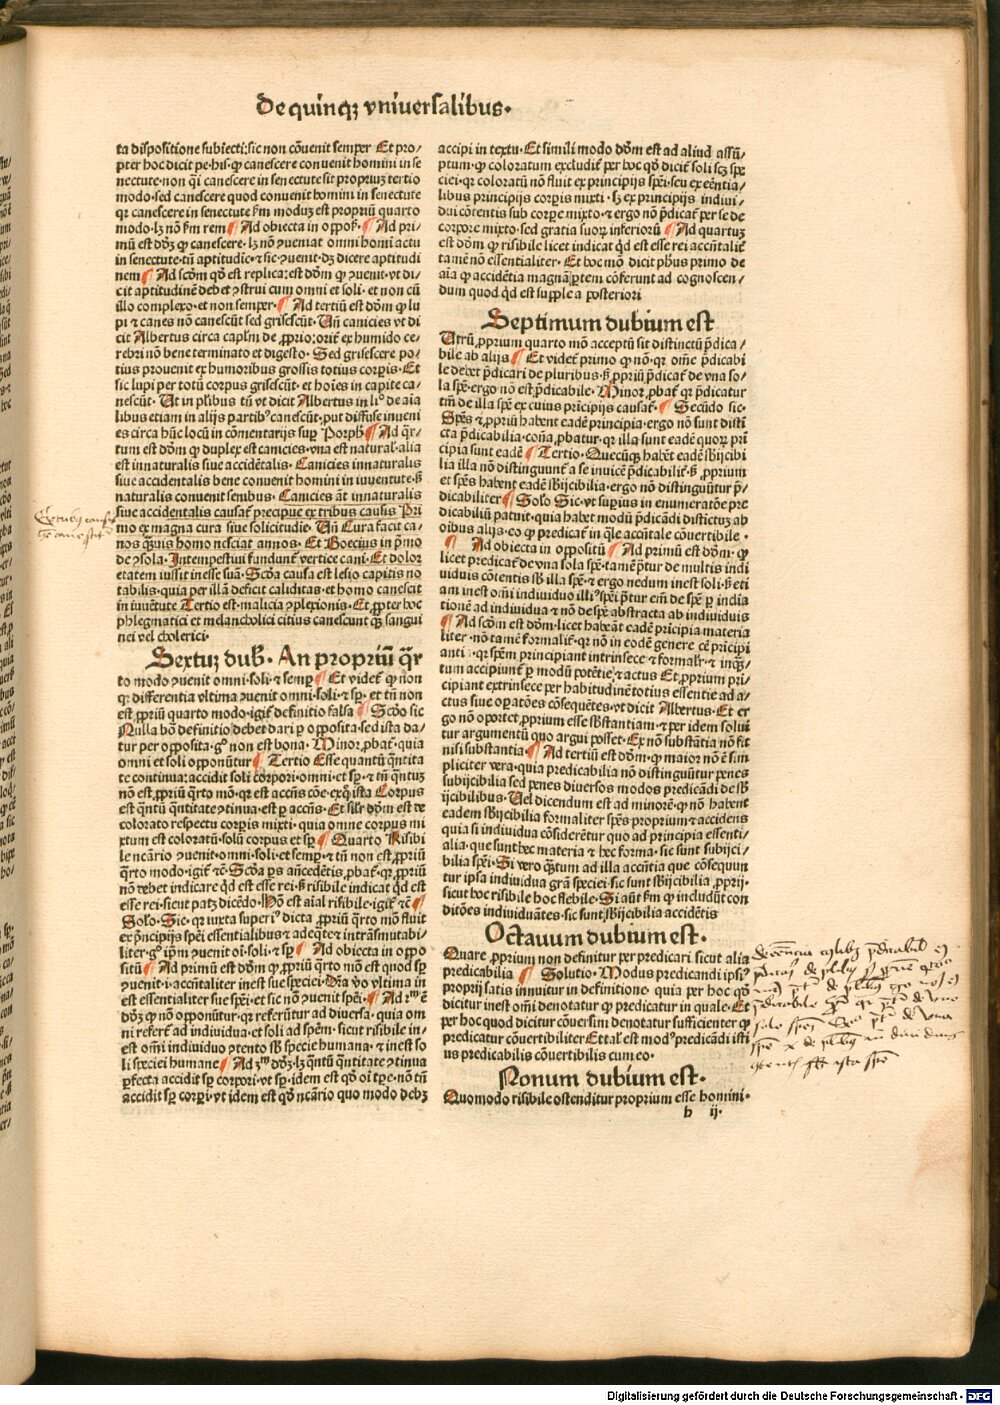 De quinqꝫ vniuersalibus.
ta dispositione subiecti: sic non cōuenit semper Et pro/
pter hoc dicit pe. his. ꝙ canescere conuenit homini in se
nectute. non qi canescere in senectute sit propriuꝫ tertio
modo. sed canescere quod conuenit homini in senectute
qr canescere in senectute ẜm moduꝫ est propriū quarto
modo. lꝫ nō ẜm rem ¶ Ad obiecta in oppoꝭ. ¶ Ad pri/
mū est dōꝫ ꝙ canescere. lꝫ nō ꝯueniat omni homī actu
in senectute. tn̄ aptitudīe. ⁊ sic ꝯuenit. dꝫ dicere aptitudi
nem ¶ Ad scōm qō est replica: est dōm ꝙ ꝯuenit. vt di/
cit aptitudinē debet ꝯstrui cum omni et soli. et non cū
illo complexo. et non semper. ¶ Ad tertiū est dōm ꝙ lu
pi ⁊ canes nō canescūt sed grisescūt. Un̄ canicies vt di
cit Albertus circa caplm̄ de ꝓprio: orit̄ ex humido ce/
rebri nō bene terminato et digesto. Sed grisescere po/
tius prouenit ex humoribus grossis totius corꝑis. Et
sic lupi per totū corpus grisescūt. et hoīes in capite ca/
nescūt. Ut in pl̄ibus tn̄ vt dicit Albertus in li° de aīa
libus etiam in alijs partibꝰ canescūt. put diffuse inueni
es circa hūc locū in cōmentarijs suꝑ Porph̄ ¶ Ad qr̄/
tum est dōm ꝙ duplex est canicies. vna est natural. alia
est innaturalis siue accidētalis. Canicies innaturalis
siue accidentalis bene conuenit homini in iuuentute. ß
naturalis conuenit senibus. Canicies aūt innaturalis
siue accidentalis causat̄ precipue ex tribus causis Pri
mo ex magna cura siue solicitudie. Un̄ Cura facit ca/
nos qᷣuis homo nesciat annos. Et Boecius in pᵐo
de ꝯsola. Intempestiui fundunt̄ vertice cani. Et dolor
etatem iussit inesse suā. Scōa causa est lesio capitis no
tabilis. quia per illā deficit caliditas. et homo canescit
in iuuētute Tertio est. malicia ꝯplexionis. Et ꝓpter hoc
phlegmatici et melancholici citius canescunt qꝫ sangui
nei vel cholerici.
Sextuꝫ dub̄. An propriū qr̄
to modo ꝯuenit omni. soli. ⁊ semꝑ ¶ Et videt̄ ꝙ non
qr differentia vltima ꝯuenit omni. soli. ⁊ sꝑ. et tn̄ non
est ꝓpriū quarto modo. igit̄ definitio falsa ¶ Scōo sic
Nulla bō definitio debet dari ꝑ opposita. sed ista da/
tur per opposita. gͦ non est bona. Minor ꝓbat̄. quia
omni et soli opponūtur ¶ Tertio Esse quantū qntita
te continua: accidit soli corpori. omni. et sꝑ. ⁊ tn̄ qntuꝫ
nō est ꝓpriū qrto mō. qr est accn̄s cōe. ex quo ista Corpus
est qntū qntitate ꝯtinua. est ꝑ accn̄s. Et silr dōm est de
colorato respectu corꝑis mixti. quia omne corpus mi
xtum est coloratū. solū corpus et sꝑ ¶ Quarto Risibi
le necārio ꝯuenit. omni. soli. et semꝑ. ⁊ tn̄ non est ꝓpriū
qrto modo. igit̄ ⁊c. Scōa ps añcedētis ꝓbat̄. qr ꝓpriū
nō debet indicare qd est esse rei. ß risibile indicat qd est
esse rei. sicut patꝫ dicēdo. Hō est aīal risibile. igit̄ ⁊c ¶
Solō. Sic. qr iuxta superiꝰ dicta ꝓpriū qrto mō fluit
ex pᵢncipijs spēi essentialibus ⁊ adeqte ⁊ intrāsmutabi/
liter. gͦ ip̄m ꝯuenit oi. soli. ⁊ sꝑ ¶ Ad obiecta in oppo
sitū ¶ Ad primū est dōm ꝙ ꝓpriū qrto mō est quod sꝑ
ꝯuenit. i. accn̄taliter inest sue speciei. Dr̄a vo vltima in
est essentialiter sue spēi. et sic nō ꝯuenit spēi. ¶ Ad 2ᵐ ē
dōꝫ ꝙ nō opponūtur. qr referūtur ad diuersa. quia om
ni refert̄ ad indiuidua. et soli ad spēm. sicut risibile in/
est omī indiuiduo ꝯtento sb̄ specie humana. ⁊ inest so
li speciei humane ¶ Ad 3ᵐ dōꝫ. lꝫ qntū qntitate ꝯtinua
ꝑfecta accidit sꝑ corpori. vt sꝑ. idem est qō oi tpe. nō tn̄
accidit sꝑ corꝑi. vt idem est qō necārio quo modo debꝫ
accipi in textu. Et simili modo dōm est ad aliud assū/
ptum. ꝙ coloratum excludit̄ per hoc qō dicit̄ soli scꝫ spe
ciei. qr coloratū nō fluit ex principijs spēi. seu ex eēntia/
libus principijs corꝑis mixti. lꝫ ex principijs indiui/
dui cōtentis sub corꝑe mixto. ⁊ ergo nō p̄dicat̄ per se de
corpore mixto. sed gratia suoꝝ inferiorū ¶ Ad quartuꝫ
est dōm ꝙ risibile licet indicat qd est esse rei accn̄talit̄
tamē nō essentialiter. Et hoc mō dicit ph̄us primo de
aīa ꝙ accidētia magnā ptem cōferunt ad cognoscen/
dum quod qd est supple a posteriori
Septimum dubium est
Utrū ꝓprium quarto mō acceptū sit distinctū p̄dica/
bile ab alijs ¶ Et videt̄ primo ꝙ nō. qr oīne p̄dicabi
le debet p̄dicari de pluribus. ß ꝓpriū p̄dicat̄ de vna so/
la spē. ergo nō est p̄dicabile. Minor ꝓbat̄ qr p̄dicat̄
tm̄ de illa spē ex cuius pᵢncipijs causat̄ ¶ Secūdo sic.
Spēs ⁊ ꝓpriū habent eadē principia. ergo nō sunt disti
cta p̄dicabilia. cōna ꝓbatur. qr illa sunt eadē quoꝝ pri
cipia sunt eadē ¶ Tertio. Quecūqꝫ habēt eadē sb̄ijcibi
lia illa nō distinguunt̄ a se inuicē p̄dicabilit̄. ß ꝓprium
et spēs habent eadē sb̄ijcibilia. ergo nō distinguūtur p̄/
dicabiliter ¶ Solō Sic. vt suꝑius in enumeratōe pre
dicabiliū patuit. quia habet modū p̄dicādi distictuꝫ ab
oibus alijs. eo ꝙ predicat̄ in qle accn̄tale cōuertibile.
¶ Ad obiecta in oppositū ¶ Ad primū est dōm. ꝙ
licet predicat̄ de vna sola spē. tamē ptur de multis indi
uiduis cōtentis sb̄ illa spē. ⁊ ergo nedum inest soli. ß eti
am inest omī indiuiduo illiꝰ spēi ptur em̄ de spē ꝑ india
tionē ad indiuidua ⁊ nō de spē abstracta ab indiuiduis
¶ Ad scōm est dōm. licet habeāt eadē pricipia materia
liter. nō tamē formalit̄. qr nō in eodē genere cē pricipi
anti. qr spēm principiant intrinsece ⁊ formalr. ⁊ inqꝫ/
tum accipiunt̄ ꝑ modū potētie ⁊ actus Et ꝓprium pri/
cipiant extrinsece per habitudinē totius essentie ad a/
ctus siue oꝑatōes cōsequētes. vt dicit Albertus. Et er
go nō oportet ꝓprium esse sb̄stantiam. ⁊ per idem solui
tur argumentū quo argui posset. Ex nō substātia nō fit
nisi substantia. ¶ Ad tertiū est dōm. ꝙ maior nō ē sim
pliciter vera. quia predicabilia nō distinguūtur penes
subijcibilia sed penes diuersos modos predicādi de sb̄
ijcibilibus. Uel dicendum est ad minorē. ꝙ nō habent
eadem sb̄ijcibilia formaliter spēs proprium ⁊ accidens
quia si indiuidua cōsiderētur quo ad principia essenti/
alia. que sunt hec materia ⁊ hec forma. sic sunt subijci/
bilia spēi. Si vero qꝫtum ad illa accn̄tia que cōsequun
tur ipsa indiuidua grā speciei. sic sunt sb̄ijcibilia ꝓprij.
sicut hoc risibile hoc flebile. Si aūt ẜm ꝙ includūt con
ditōes indiuiduātes. sic sunt sb̄ijcibilia accidētis
Octauum dubium est.
Quare ꝓprium non definitur per predicari sicut alia
predicabilia ¶ Solutio. Modus predicandi ipsiꝰ
proprij satis innuitur in definitione. quia per hoc qō
dicitur inest omī denotatur ꝙ predicatur in quale. Et
per hoc quod dicitur cōuersim denotatur sufficienter ꝙ
predicatur cōuertibiliter Et tal est modꝰ predicādi isti
us predicabilis cōuertibilis cum eo.
Nonum dubium est.
Quomodo risibile ostenditur proprium esse homini.
b ij.